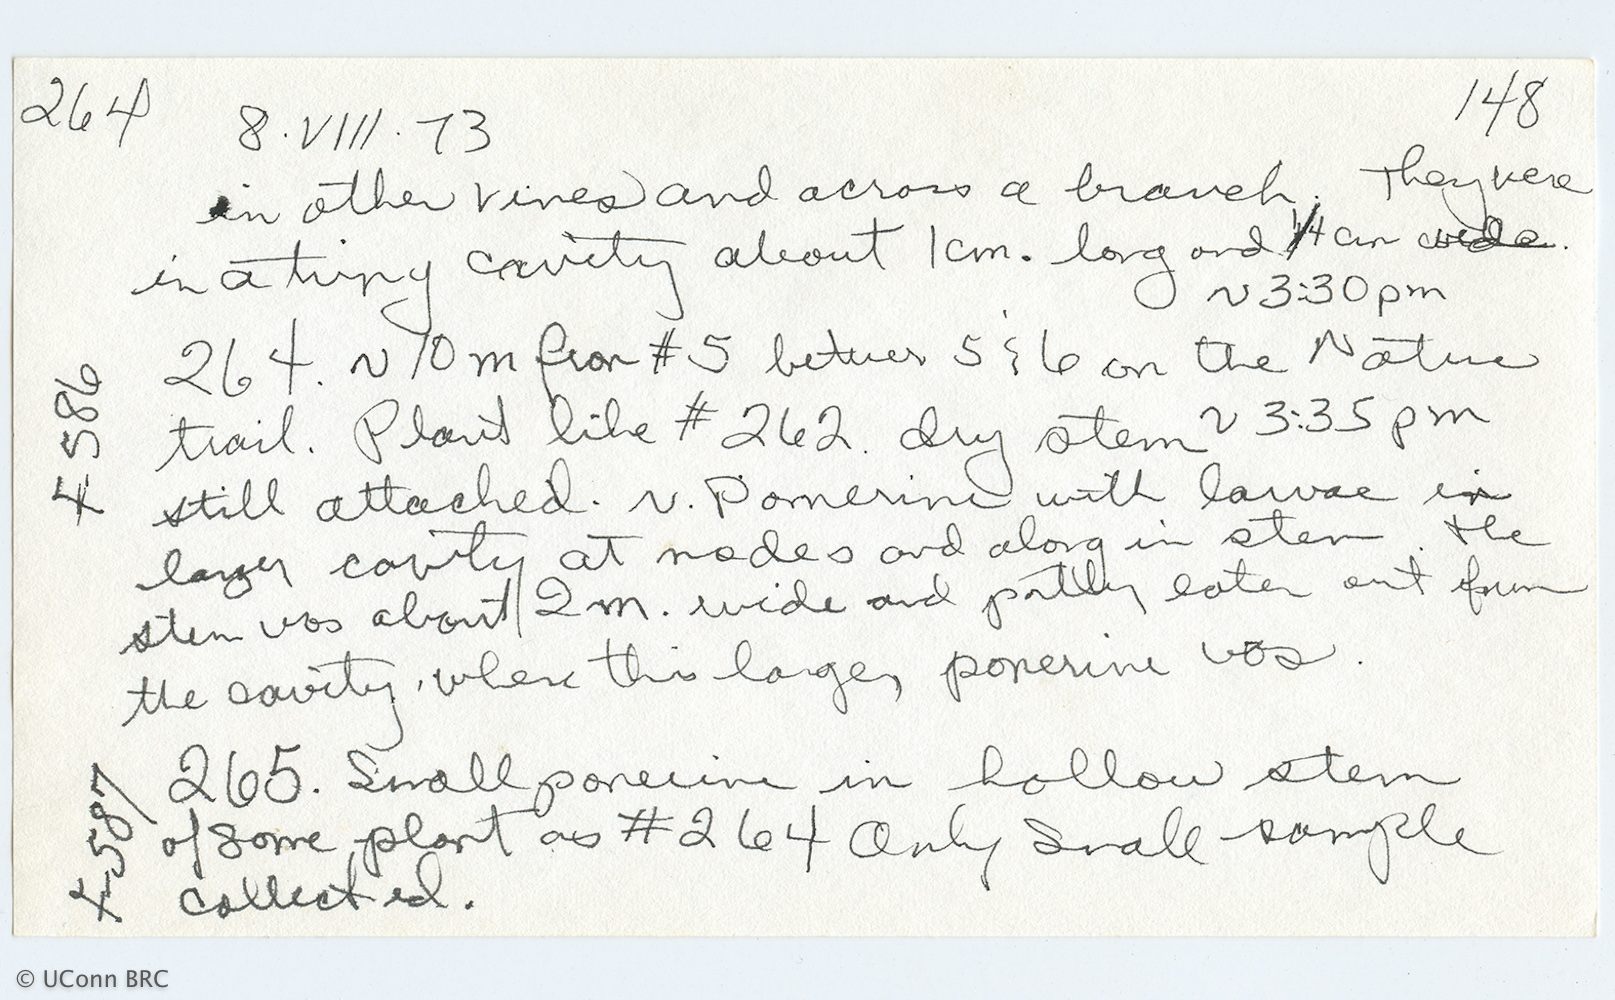 264 8·VIII·73 148
in other vines) and across a branch. They were
in a tiny cavity about 1 cm. long and 1/4 cm wide.
~ 3:30 pm
264. ~ 10 m from #5 between 5 & 6 on the Nature
trail. Plant like #262. dry stem ~ 3:35 pm
still attached. n. Ponerine with larvae in
larger cavity at nodes and along in stem. The
stem was about 2 m. wide and partly eaten out from
the cavity, where this large, ponerine was.
265. Small ponerine in hollow stem
of same plant as #264 Only small sample
collected.
X-586
X-587
© UConn BRC